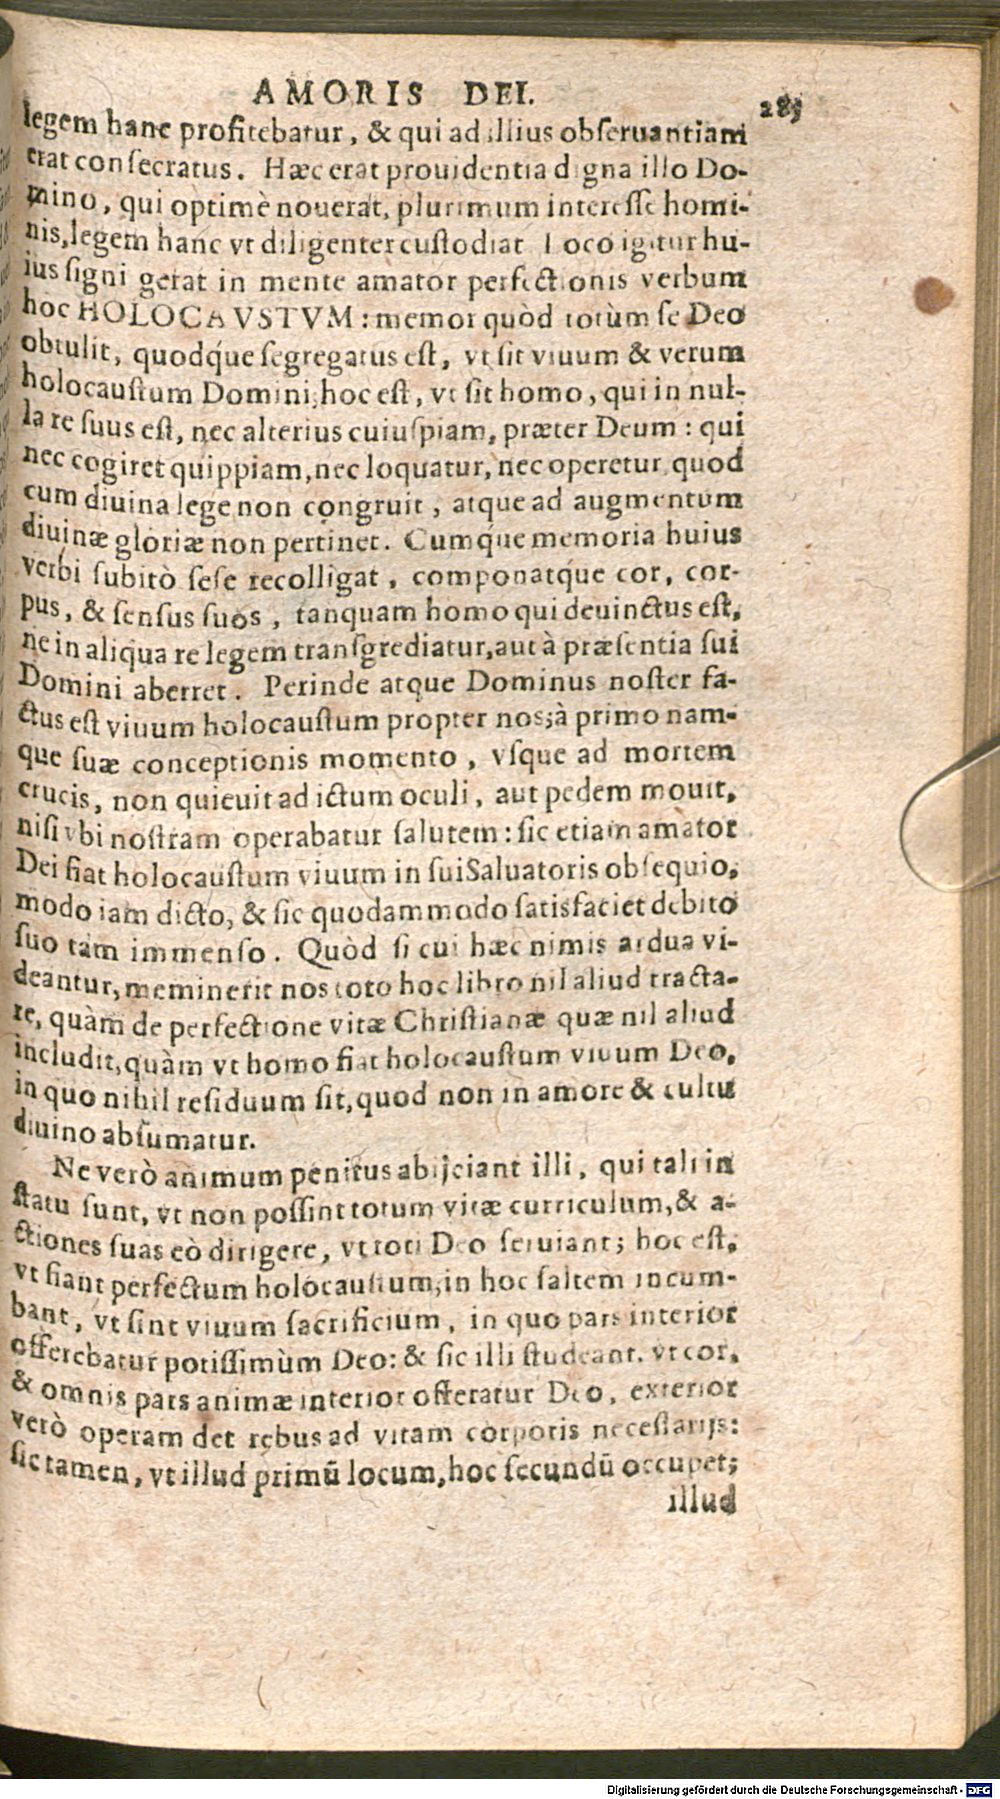 AMORIS DEI.
285
legem hanc profitebatur, & qui ad illius obſeruantiam
erat conſecratus. Hæc erat prouidentia digna illo Do-
mino, qui optimè nouerat, plurimum intereſſe homi-
nis, legem hanc vt diligenter cuſtodiat Loco igitur hu-
ius ſigni gerat in mente amator perfectionis verbum
hoc HOLOCAVSTVM: memor quòd totùm ſe Deo
obtulit, quodq́ue ſegregatus eſt, vt ſit viuum & verum
holocauſtum Domini, hoc eſt, vt ſit homo, qui in nul-
la re ſuus eſt, nec alterius cuiuſpiam, præter Deum: qui
nec cogitet quippiam, nec loquatur, nec operetur quod
cum diuina lege non congruit, atque ad augmentum
diuinæ gloriæ non pertinet. Cumq́ue memoria huius
verbi ſubitò ſeſe recolligat, componatq́ue cor, cor-
pus, & ſenſus ſuos, tanquam homo qui deuinctus eſt,
ne in aliqua re legem tranſgrediatur, aut à præſentia ſui
Domini aberret. Perinde atque Dominus noſter fa-
ctus eſt viuum holocauſtum propter nos; à primo nam-
que ſuæ conceptionis momento, vſque ad mortem
crucis, non quieuit ad ictum oculi, aut pedem mouit,
niſi vbi noſtram operabatur ſalutem: ſic etiam amator
Dei fiat holocauſtum viuum in ſui Saluatoris obſequio,
modo iam dicto, & ſic quodammodo ſatisfaciet debito
ſuo tam immenſo. Quòd ſi cui hæc nimis ardua vi-
deantur, meminerit nos toto hoc libro nil aliud tracta-
re, quàm de perfectione vitæ Chriſtianæ quæ nil aliud
includit, quàm vt homo fiat holocauſtum viuum Deo,
in quo nihil reſiduum ſit, quod non in amore & cultu
diuino abſumatur.
Ne verò animum penitus abijciant illi, qui tali in
ſtatu ſunt, vt non poſſint totum vitæ curriculum, & a-
ctiones ſuas eò dirigere, vt toti Deo ſeruiant; hoc eſt,
vt fiant perfectum holocauſtum, in hoc ſaltem incum-
bant, vt ſint viuum ſacrificium, in quo pars interior
offerebatur potiſſimùm Deo: & ſic illi ſtudeant. vt cor,
& omnis pars animæ interior offeratur Deo, exterior
verò operam det rebus ad vitam corporis neceſſarijs:
ſic tamen, vt illud primū locum, hoc ſecundū occupet;
illud
Digitalisierung gefördert durch die Deutsche Forschungsgemeinschaft - DFG